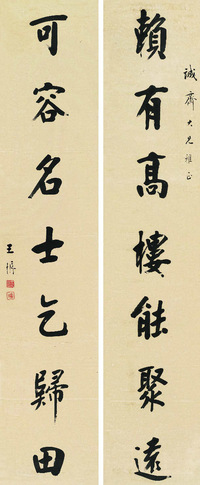 誠齋大兄雅正
賴有高樓能聚遠
可容名士乞歸田
王